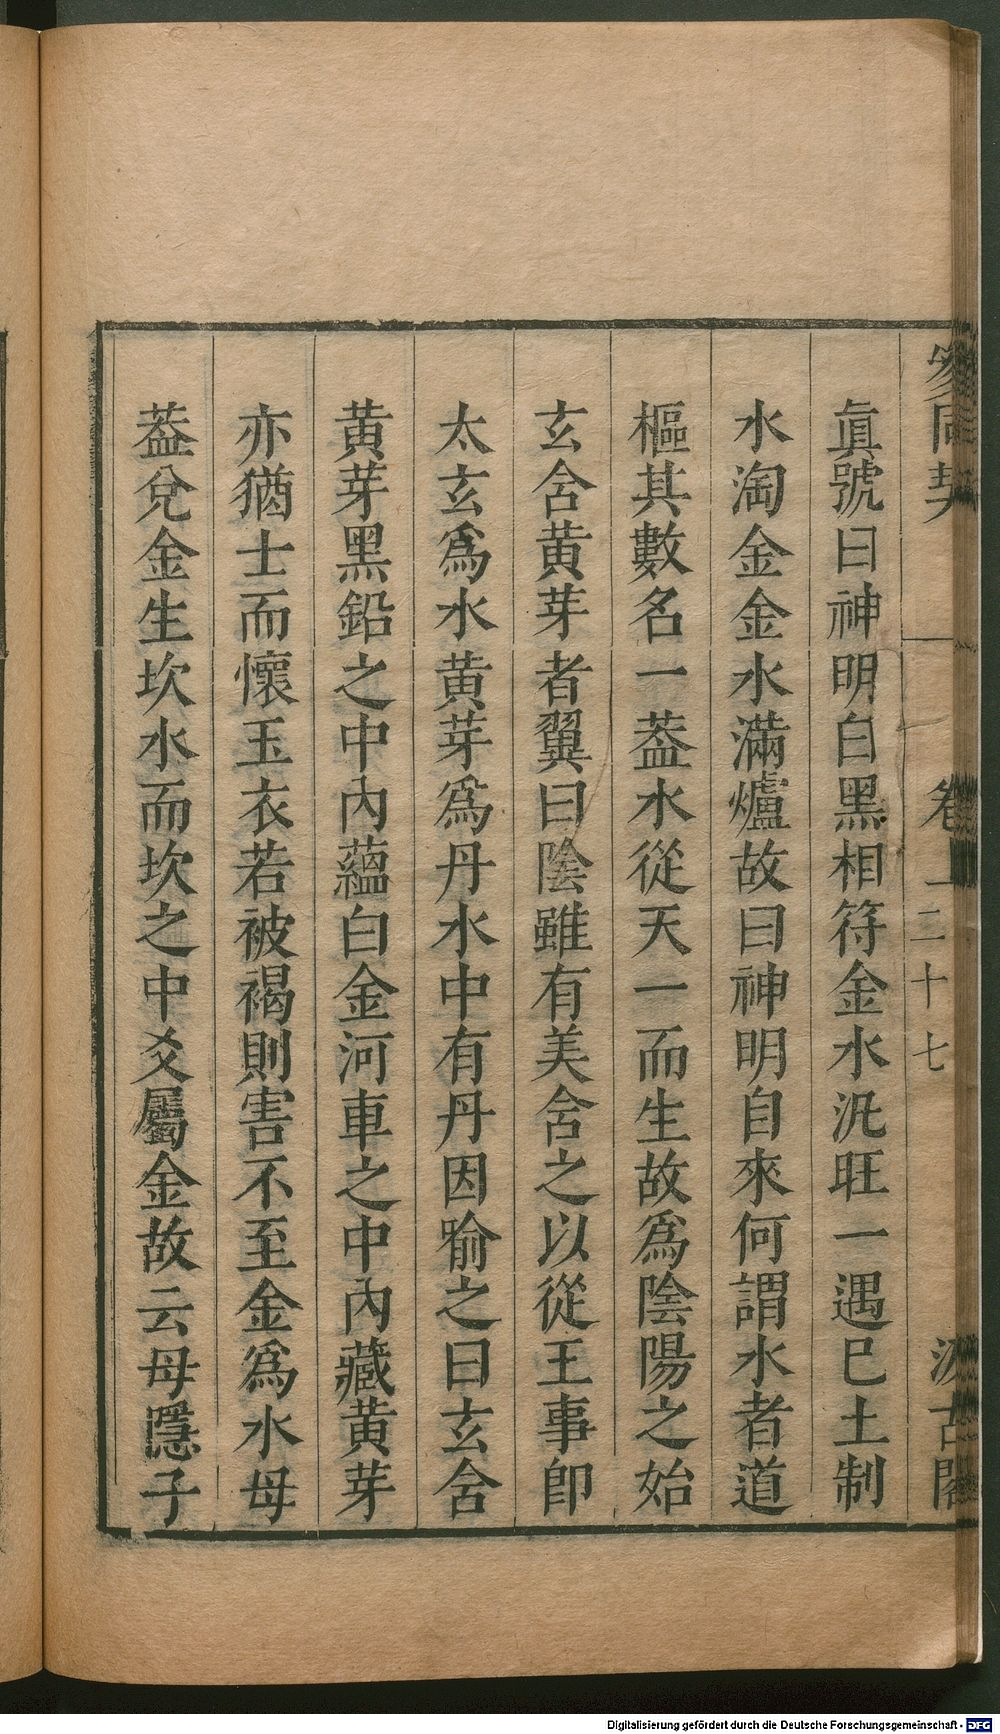 參同契 卷上 二十七 汲古閣
眞號曰神明白黑相符金水汎旺一遇巳土制
水淘金金水滿爐故曰神明自來何謂水者道
樞其數名一葢水從天一而生故爲陰陽之始
玄含黃芽者翼曰陰雖有美含之以從王事卽
太玄爲水黃芽爲丹水中有丹因喻之曰玄含
黃芽黑鉛之中內蘊白金河車之中內藏黃芽
亦猶士而懷玉衣若被褐則害不至金爲水母
葢兌金生坎水而坎之中爻屬金故云母隱子
Digitalisierung gefördert durch die Deutsche Forschungsgemeinschaft - DFG